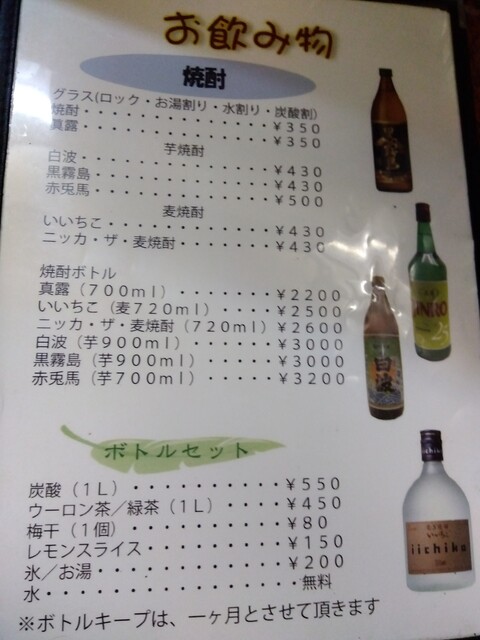 お飲み物
焼酎
グラス(ロック・お湯割り・水割り・炭酸割)
焼酎・・・・・・・・・・・・・・¥350
真露・・・・・・・・・・・・・・¥350
芋焼酎
白波・・・・・・・・・・・・・・¥430
黒霧島・・・・・・・・・・・・・¥430
赤兎馬・・・・・・・・・・・・・¥500
麦焼酎
いいちこ・・・・・・・・・・・・¥430
ニッカ・ザ・麦焼酎・・・・・・・¥430
焼酎ボトル
真露(700ml)・・・・・・・¥2200
いいちこ(麦720ml)・・・・・¥2500
ニッカ・ザ・麦焼酎(720ml)・¥2600
白波(芋900ml)・・・・・・¥3000
黒霧島(芋900ml)・・・・・¥3000
赤兎馬(芋700ml)・・・・・¥3200
ボトルセット
炭酸(1L)・・・・・・・・・・・¥550
ウーロン茶/緑茶(1L)・・・・・¥450
梅干(1個)・・・・・・・・・・・¥80
レモンスライス・・・・・・・・・¥150
氷/お湯・・・・・・・・・・・・¥200
水・・・・・・・・・・・・・・・・無料
※ボトルキープは、一ヶ月とさせて頂きます
JINRO
25
白波
いいちこ
iichiko